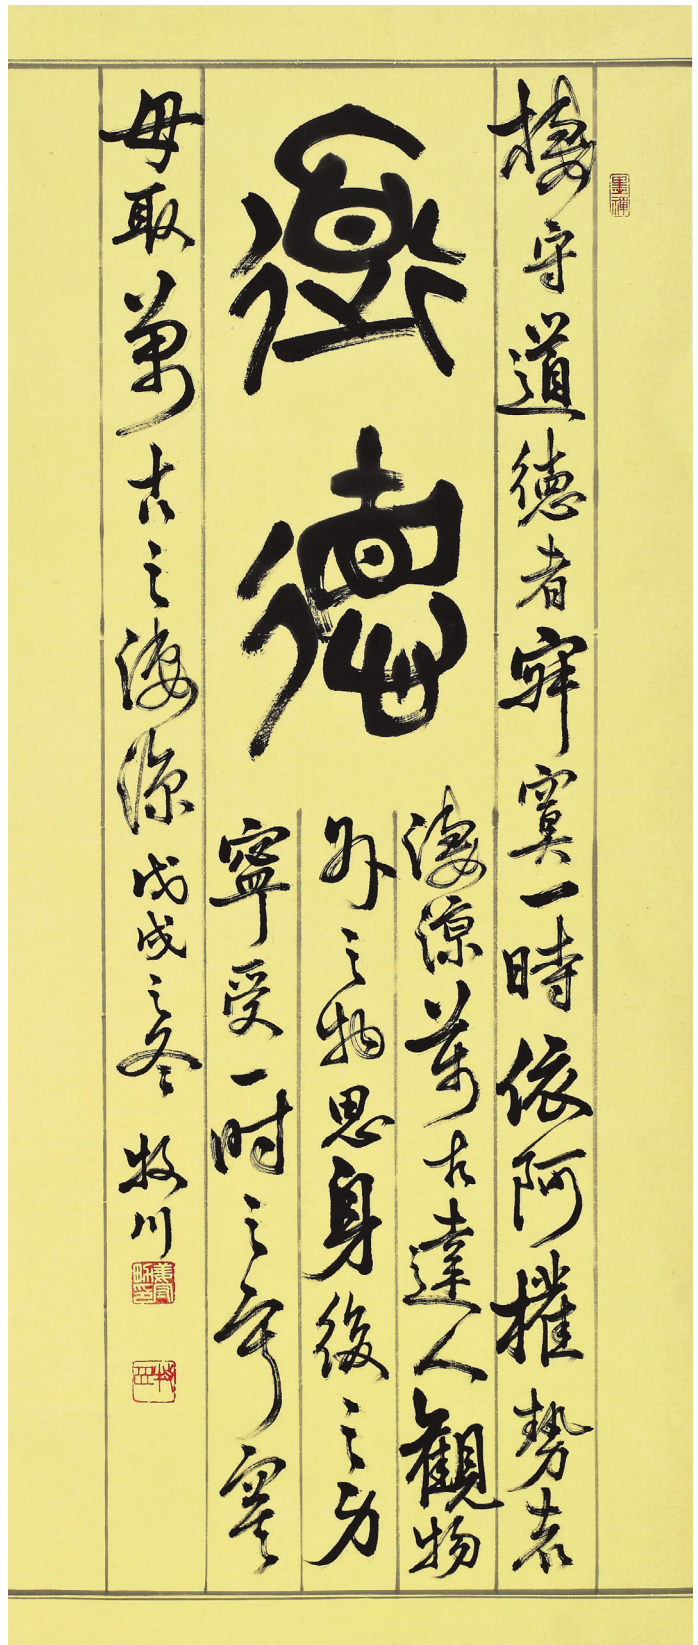 墨禪
棲守道德者寂寞一時依阿權勢者
道德
淒涼萬古達人觀物
外之物思身後之身
寧受一時之寂寞
毋取萬古之淒涼 戊戌之冬 牧川